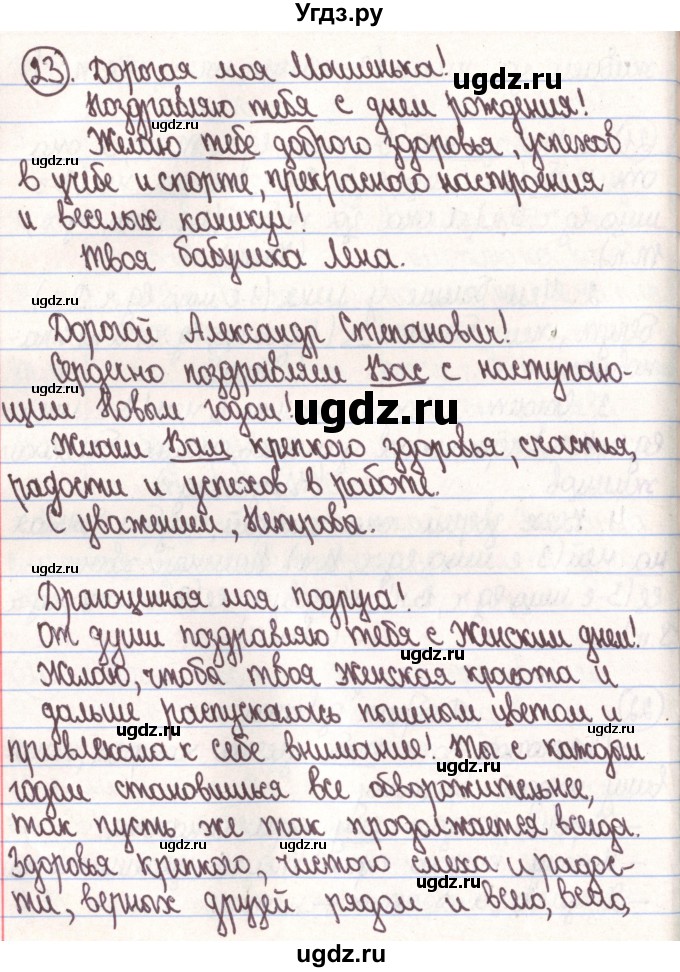 Угдз.ру
23. Дорогая моя Машенька!
Поздравляю тебя с днем рождения!
Желаю тебе доброго здоровья, успехов
в учебе и спорте, прекрасного настроения
и веселых каникул!
Твоя бабушка Лена.
Дорогой Александр Степанович!
Сердечно поздравляем Вас с наступаю-
щим Новым годом!
Желаем Вам крепкого здоровья, счастья,
радости и успехов в работе.
С уважением, Петрова.
Драгоценная моя подруга!
От души поздравляю тебя с Женским днем!
Желаю, чтобы твоя женская красота и
дальше распускалась пышным цветом и
привлекала к себе внимание! Ты с каждым
годом становишься все обворожительнее,
так пусть же так продолжается всегда.
Здоровья крепкого, чистого смеха и радос-
ти, верных друзей рядом и всего, всего,
ugdz.ru